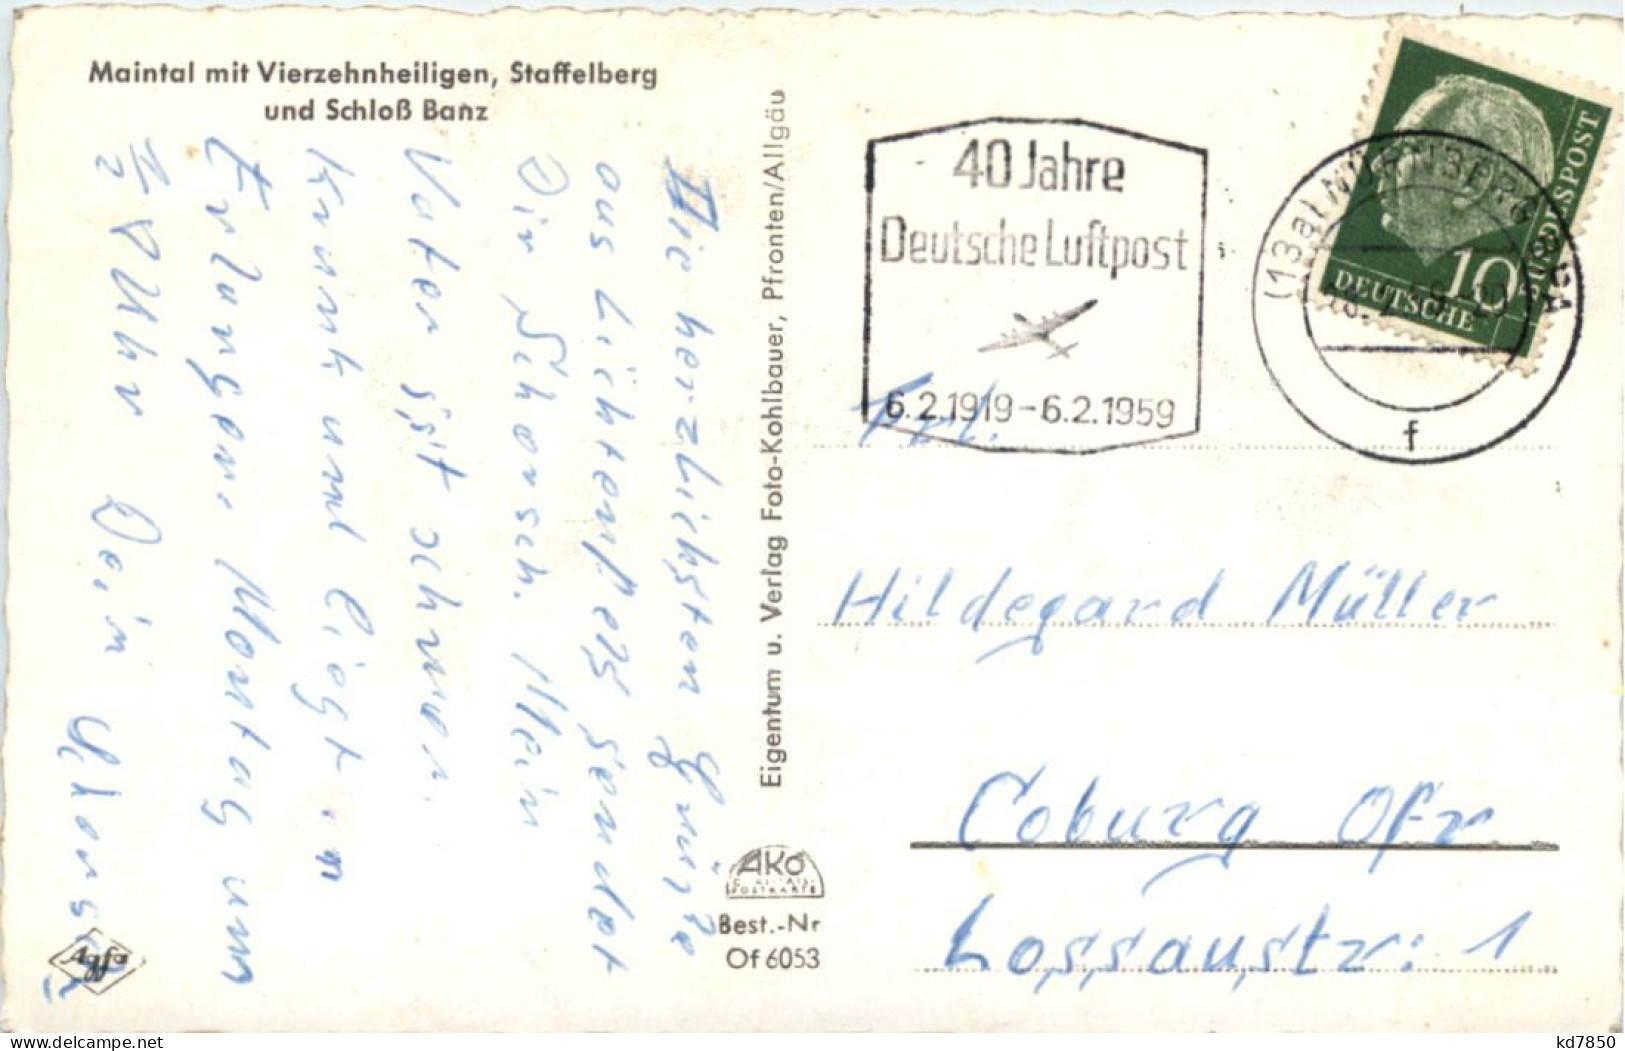 Maintal mit Vierzehnheiligen, Staffelberg
und Schloß Banz
Die herzlichsten Grüße
aus Lichtenfels sendet
Dir Schorsch. Mein
Vater ist schwer
krank und liegt in
Erlangen. Montag um
Uhr Dein Schorsch
Eigentum u. Verlag Foto-Kohlbauer, Pfronten/Allgäu
AKO
QUALITÄTS-
POSTKARTE
Best.-Nr
Of 6053
Agfa
40 Jahre
Deutsche Luftpost
6.2.1919-6.2.1959
(13a) NÜRNBERG
f
10
DEUTSCHE
BUNDESPOST
Frl.
Hildegard Müller
Coburg Ofr
Lossaustr: 1
kd7850